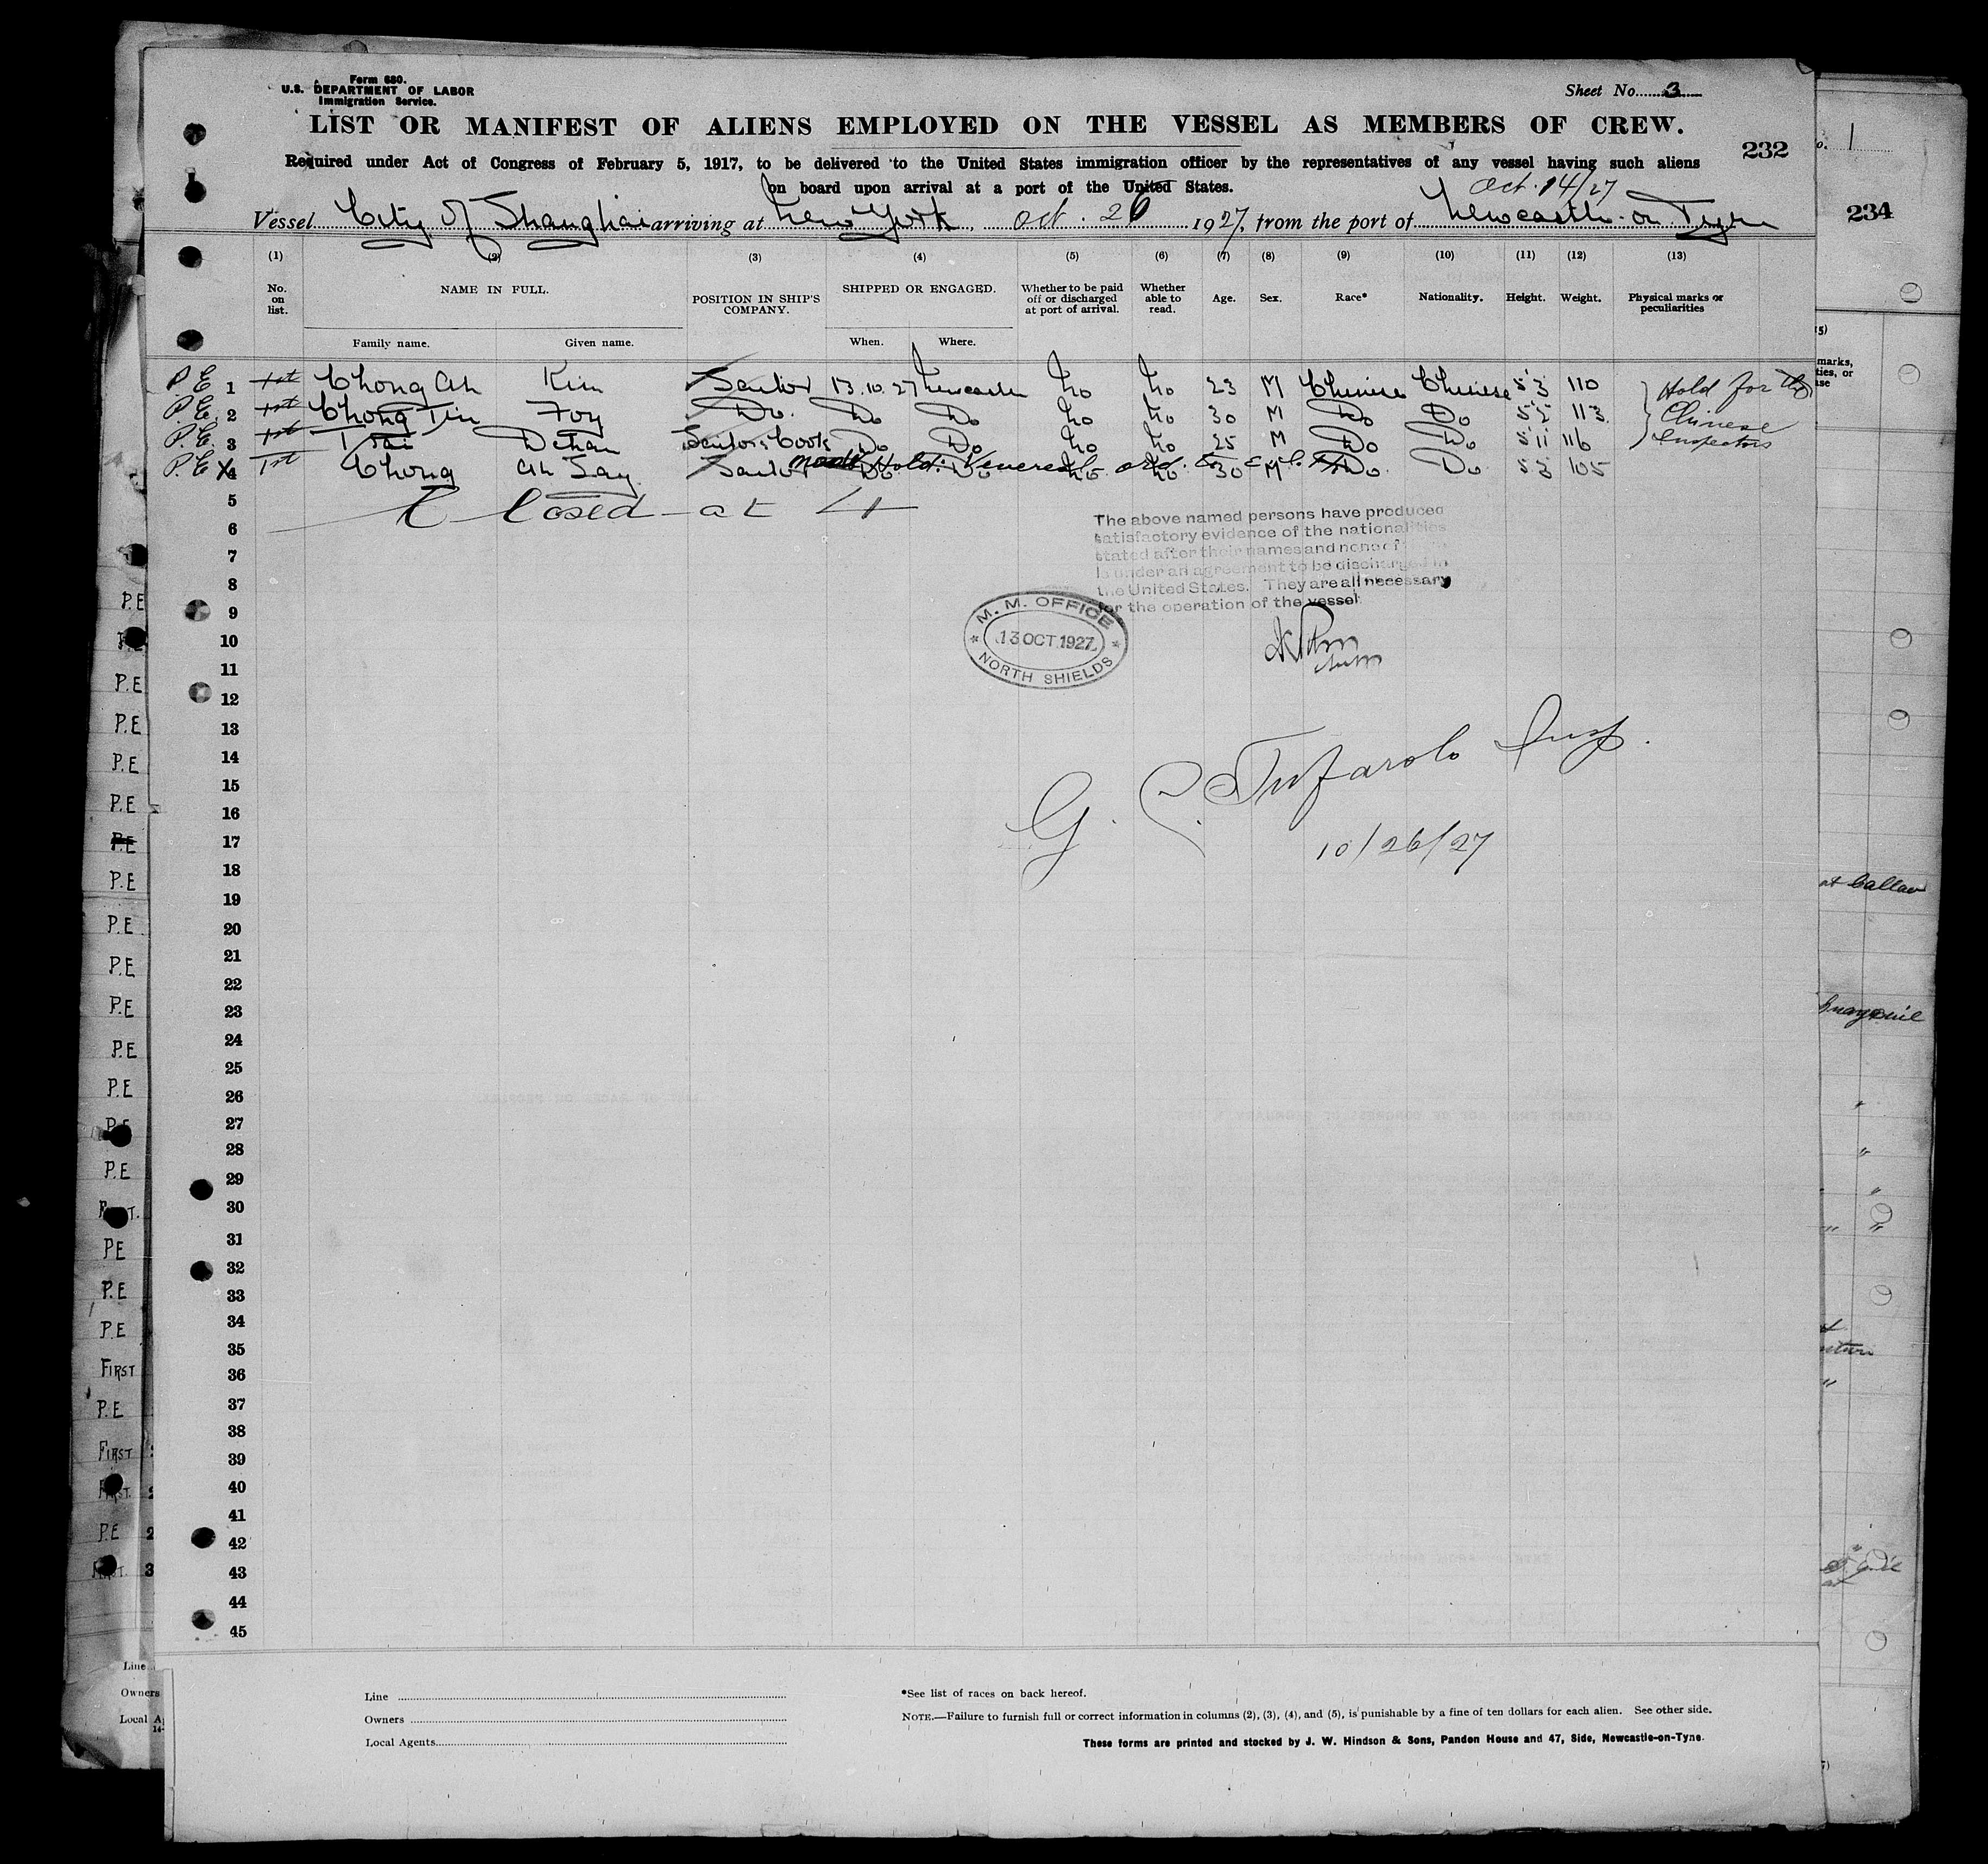 Form 680.
U.S. DEPARTMENT OF LABOR
Immigration Service.
Sheet No. 3
LIST OR MANIFEST OF ALIENS EMPLOYED ON THE VESSEL AS MEMBERS OF CREW.
232
Required under Act of Congress of February 5, 1917, to be delivered to the United States immigration officer by the representatives of any vessel having such aliens
on board upon arrival at a port of the United States.
Oct. 14/27
Vessel City of Shanghai arriving at New York, Oct. 26 1927, from the port of Newcastle-on-Tyne
(1) (2) (3) (4) (5) (6) (7) (8) (9) (10) (11) (12) (13)
No. on list. NAME IN FULL. POSITION IN SHIP'S COMPANY. SHIPPED OR ENGAGED. Whether to be paid off or discharged at port of arrival. Whether able to read. Age. Sex. Race* Nationality. Height. Weight. Physical marks or peculiarities
Family name. Given name. When. Where.
P.E. 1 1st Chong Ah Kim Sailor 13.10.27 Newcastle No No 23 M Chinese Chinese 5'3 110 Hold for the
P.E. 2 1st Chong Tin Foy Do. Do Do No No 30 M Do Do 5'2 113 Chinese
P.E. 3 1st Tsai Dehan Sailors Cook Do Do No No 25 M Do Do 5'11 116 Inspectors
P.E. X 4 1st Chong Ah Say Sailor Do Do No No 30 M Do Do 5'3 105
Hold. Venereal
5
Closed at 4
6
7
8
9
10
11
12
13
14
15
16
17
18
19
20
21
22
23
24
25
26
27
28
29
30
31
32
33
34
35
36
37
38
39
40
41
42
43
44
45
The above named persons have produced
satisfactory evidence of the nationalities
stated after their names and none of
is under an agreement to be discharged in
the United States. They are all necessary
for the operation of the vessel.
M. M. OFFICE
13 OCT 1927
NORTH SHIELDS
G. C. Tufarolo Insp.
10/26/27
Line
Owners
Local Agents
*See list of races on back hereof.
NOTE.—Failure to furnish full or correct information in columns (2), (3), (4), and (5), is punishable by a fine of ten dollars for each alien. See other side.
These forms are printed and stocked by J. W. Hindson & Sons, Pandon House and 47, Side, Newcastle-on-Tyne.
P.E
P.E
P.E
P.E
P.E
P.E
P.E
P.E
P.E
P.E
P.E
P.E
P.E
P.E
PE
P.E
P.E
FIRST
P.E
FIRST
P.E
Line
Owners
Local
1
234
at Callao
Guayaquil